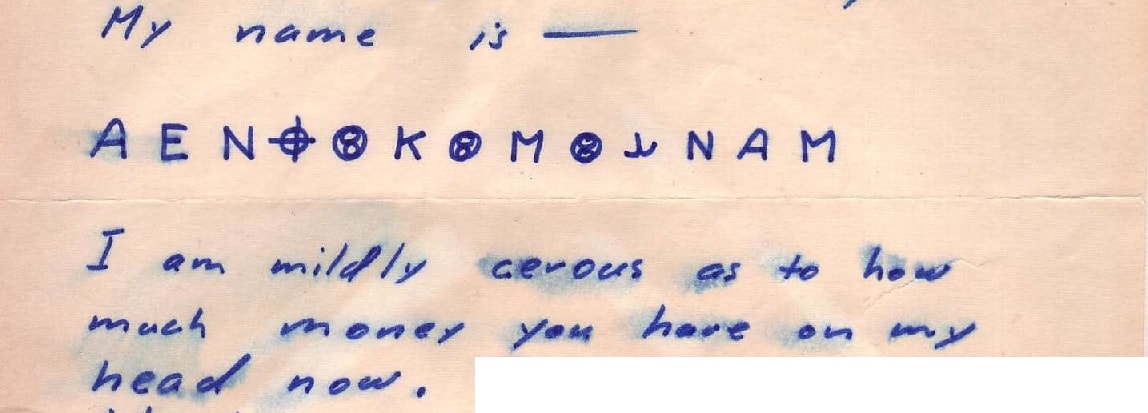 My name is —
A E N ⌖ ⑧ K ⑧ M ⑧ ⅄ N A M
I am mildly cerous as to how
much money you have on my
head now.